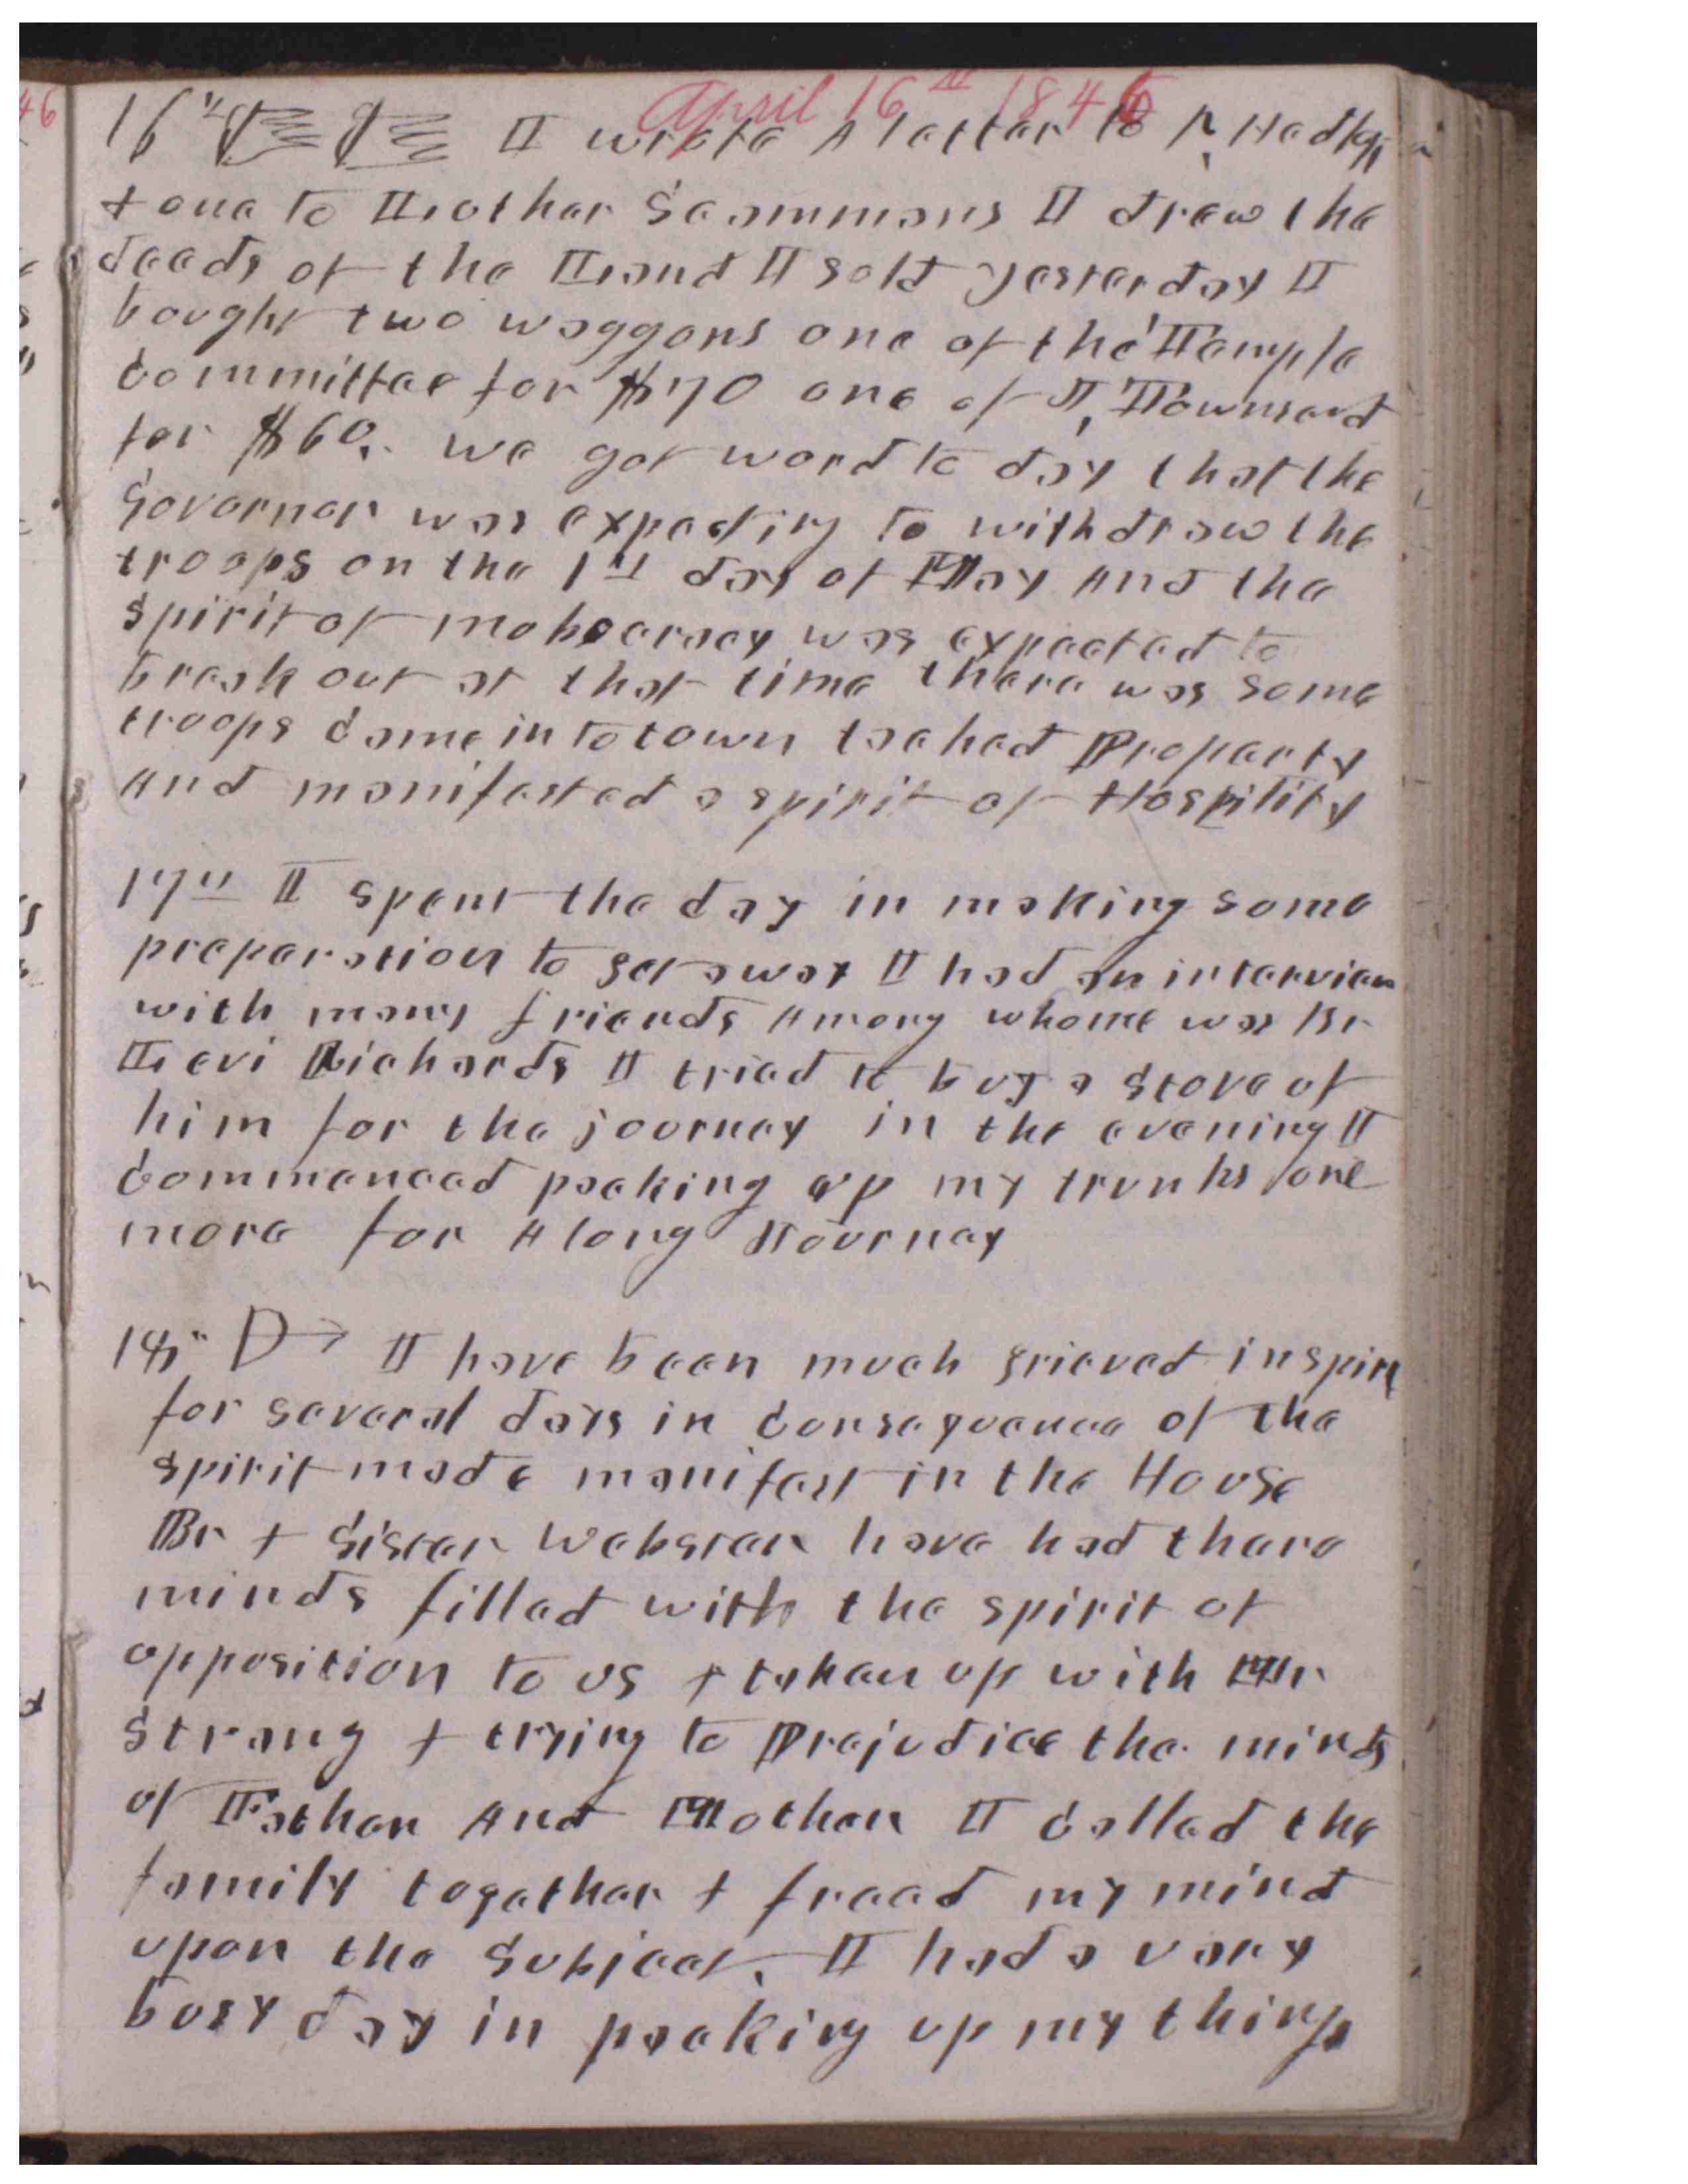 April 16th 1846
16th I wrote A letter to R, Hedlock
+ one to Brother Scammans I drew the
deeds of the Land I sold yesterday I
bought two waggons one of the Temple
Committee for $70 one of J, Townsend
for $60. we got word to day that the
Governor was expecting to withdraw the
troops on the 1st day of May And the
spirit of mobocracy was expected to
break out at that time there was some
troops Came in to town tached Property
And manifested a spirit of Hostility
17th I spent the day in making some
preparation to get away I had an interview
with many friends Among whome was Br
Levi Richards I tried to buy a stove of
him for the journey in the evening I
Commenced packing up my trunks one
more for A long Journey
18th I have been much grieved in spirit
for several days in Consequence of the
spirit made manifest in the House
Br + Sister Webster have had there
minds filled with the spirit of
opposition to us + taken up with Mr
Strang + trying to Prejudice the minds
of Father And Mother I Called the
family together + freed my mind
upon the Subject. I had a very
busy day in packing up my things